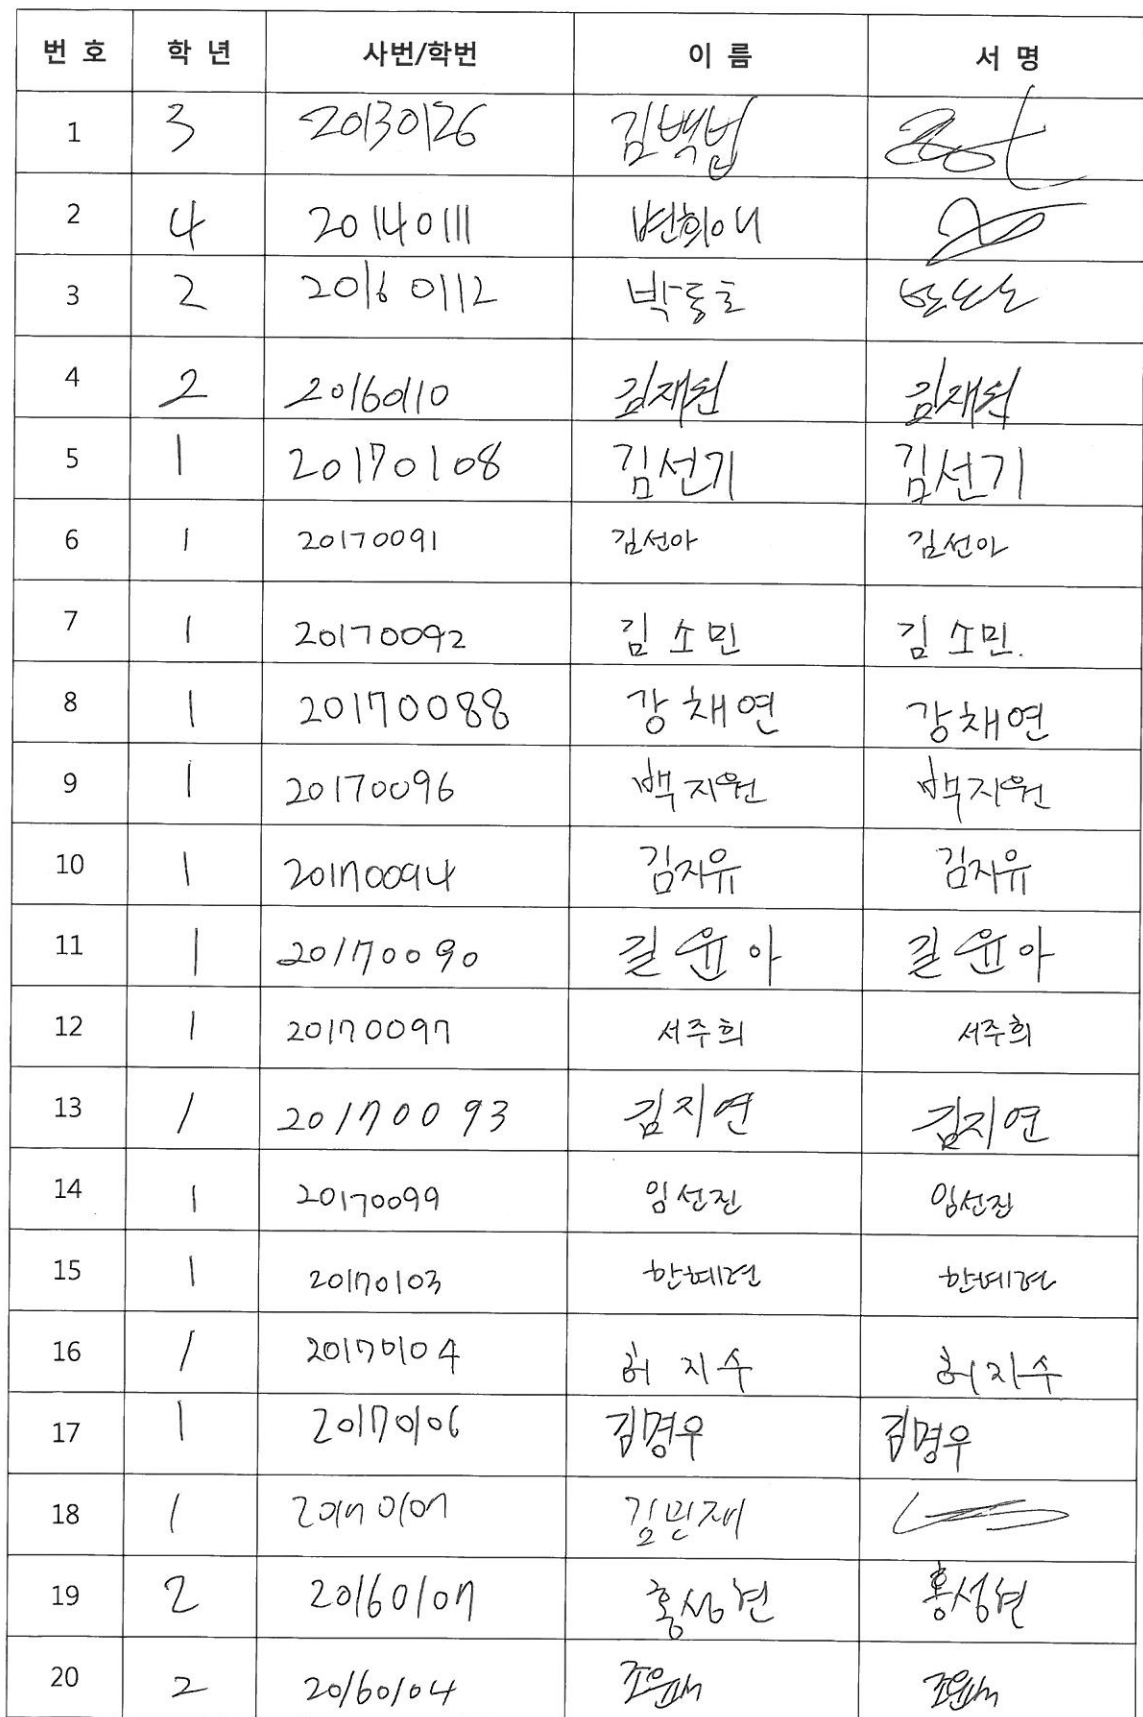 번 호 학 년 사번/학번 이 름 서 명
1 3 20130126 김백범
2 4 20140111
3 2 20160112 박동호
4 2 20160110 김재원 김재원
5 1 20170108 김선기 김선기
6 1 20170091 김선아 김선아
7 1 20170092 김소민 김소민.
8 1 20170088 강채연 강채연
9 1 20170096 백지원 백지원
10 1 20170094 김지유 김지유
11 1 20170090 길윤아 길윤아
12 1 20170097 서주희 서주희
13 1 20170093 김지연 김지연
14 1 20170099 임선진 임선진
15 1 20170103 한혜련 한혜련
16 1 20170104 허지수 허지수
17 1 20170106 김명우 김명우
18 1 20170107 김민재
19 2 20160107 홍성현 홍성현
20 2 20160104